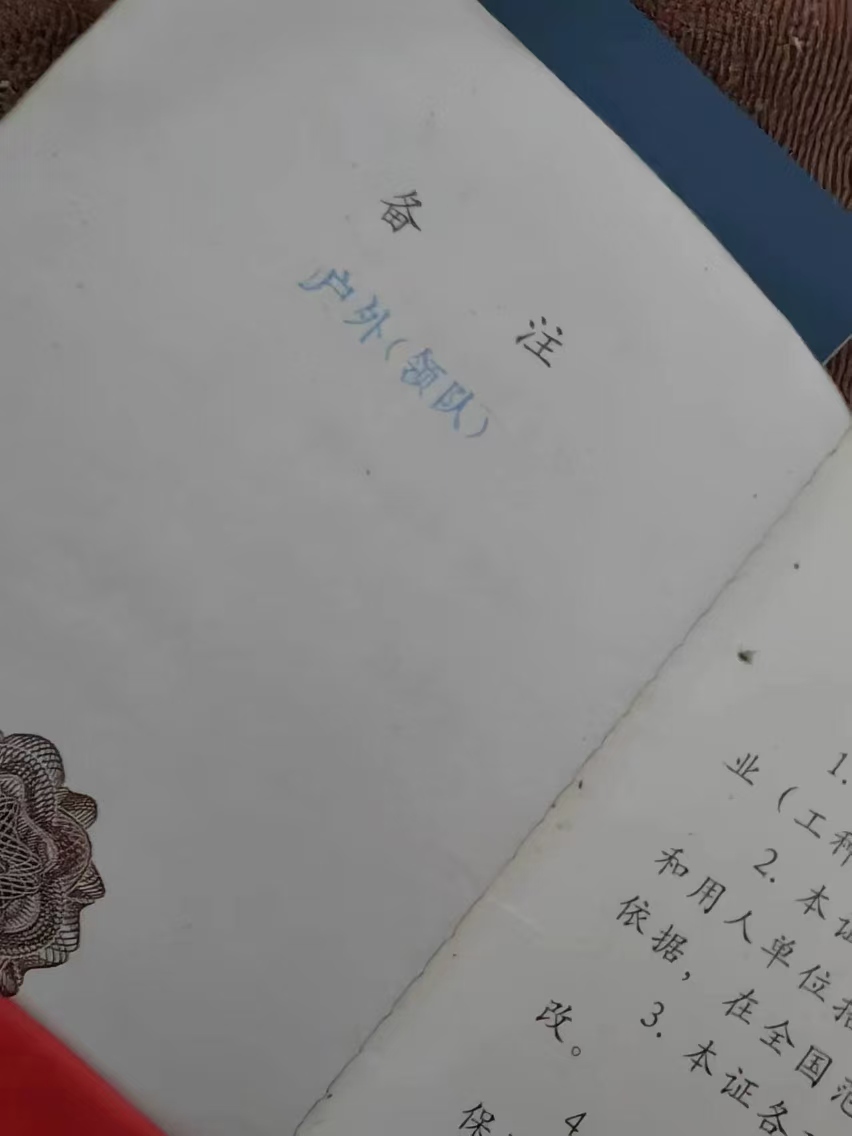 备 注
户外(领队)
1.
业(工种
2. 本证
和用人单位招
依据,在全国范
改。
3. 本证各
4
保